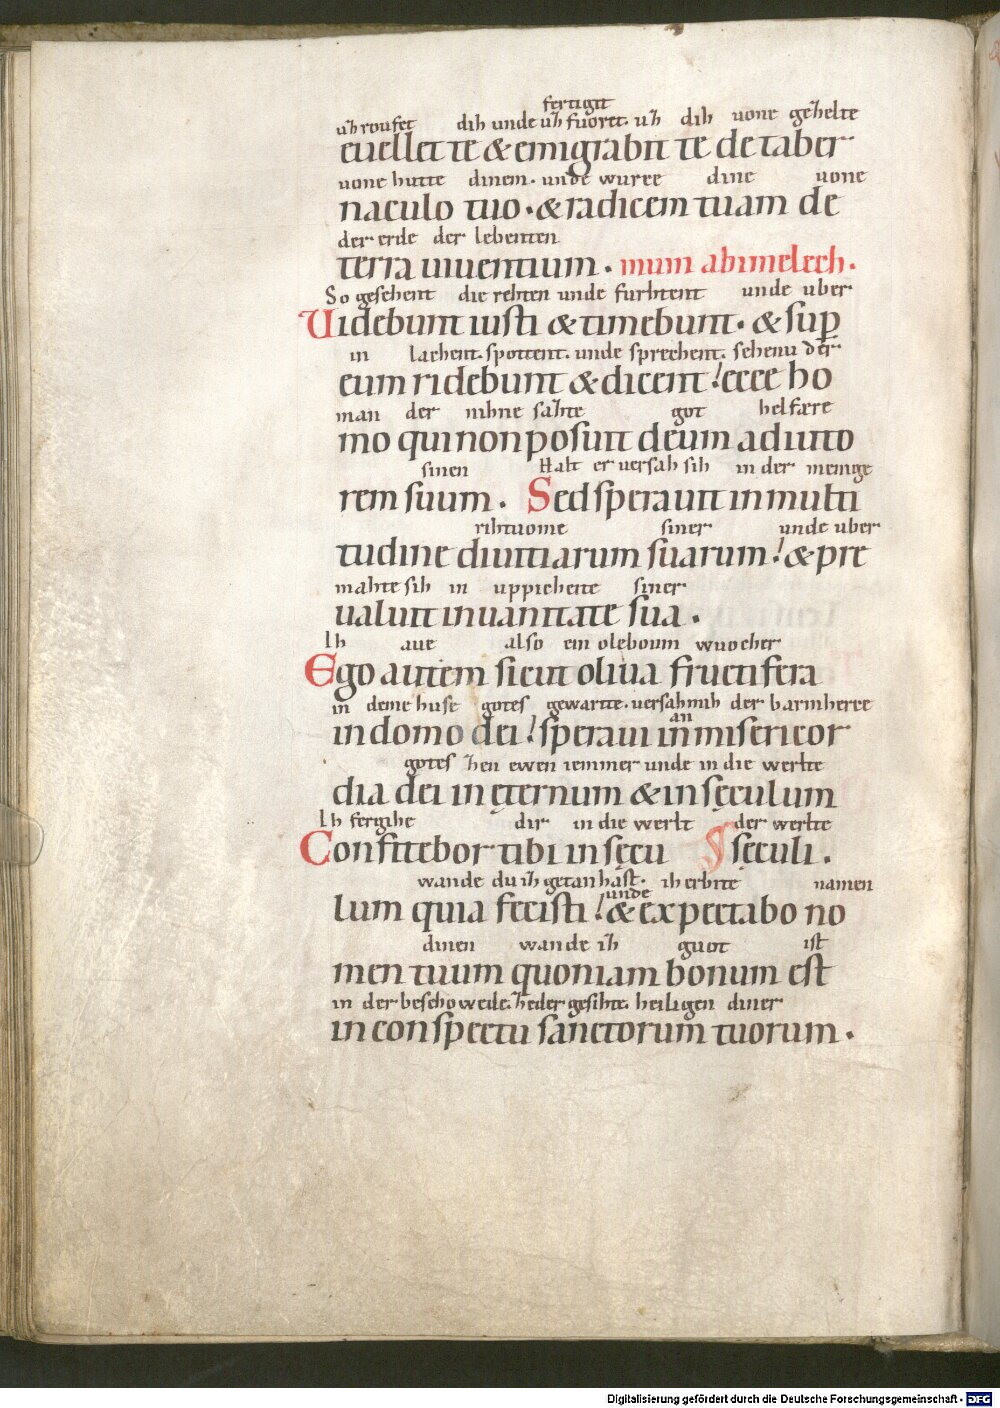 fertigit
uh roufet dih unde uh fuoret. uh dih uone gehelte
euellet te & emigrabit te de taber
uone hutte dinem. unde wurze dine uone
naculo tuo. & radicem tuam de
der erde der lebenten
terra uiuentium. mum abimelech.
So gesehent die rehten unde furhtent unde uber
Uidebunt iusti & timebunt. & sup
in lachent. spottent. unde sprechent. sehenu der
eum ridebunt & dicent! ecce ho
man der nihne sazte got helfære
mo qui non posuit deum adiuto
sinen Halt er uersah sih in der menige
rem suum. Sed sperauit in multi
rihtuome siner unde uber
tudine diuitiarum suarum! & pre
mahte sih in uppicheite siner
ualuit in uanitate sua.
Ih aue also ein oleboum wuocher
Ego autem sicut oliua fructifera
in deme huse gotes gewartte. uersah mih der barmherze
an
in domo dei! speraui in misericor
gotes hen ewen iemmer unde in die werlte
dia dei in ęternum & in sęculum
Ih fergihe dir in die werlt der werlte
Confitebor tibi in sęcu sęculi.
wande du ih getan hast. ih erbite namen
unde
lum quia fecisti! & expectabo no
dinen wande ih guot ist
men tuum quoniam bonum est
in der beschowede. heder gesihte. heiligen diner
in conspectu sanctorum tuorum.
Digitalisierung gefördert durch die Deutsche Forschungsgemeinschaft - DFG